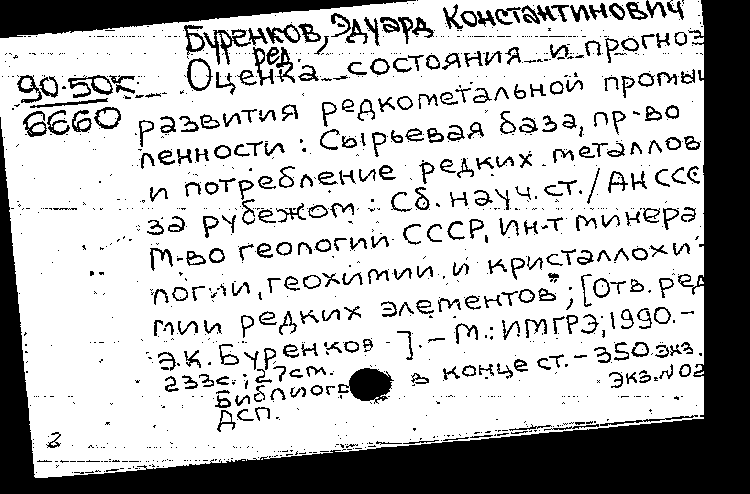 Буренков, Эдуард Константинович
ред.
90-50К Оценка состояния и прогноз
6660 развития редкометальной промыш
ленности: Сырьевая база, пр-во
и потребление редких металлов
за рубежом: Сб. науч. ст./АН ССС
М-во геологии СССР, Ин-т минера
логии, геохимии и кристаллохи-
мии редких элементов"; [Отв. ред
Э.К. Буренков]. - М.: ИМГРЭ, 1990. -
233с.; 27см.
Библиогр в конце ст. - 350 экз.
ДСП. Экз. N 02